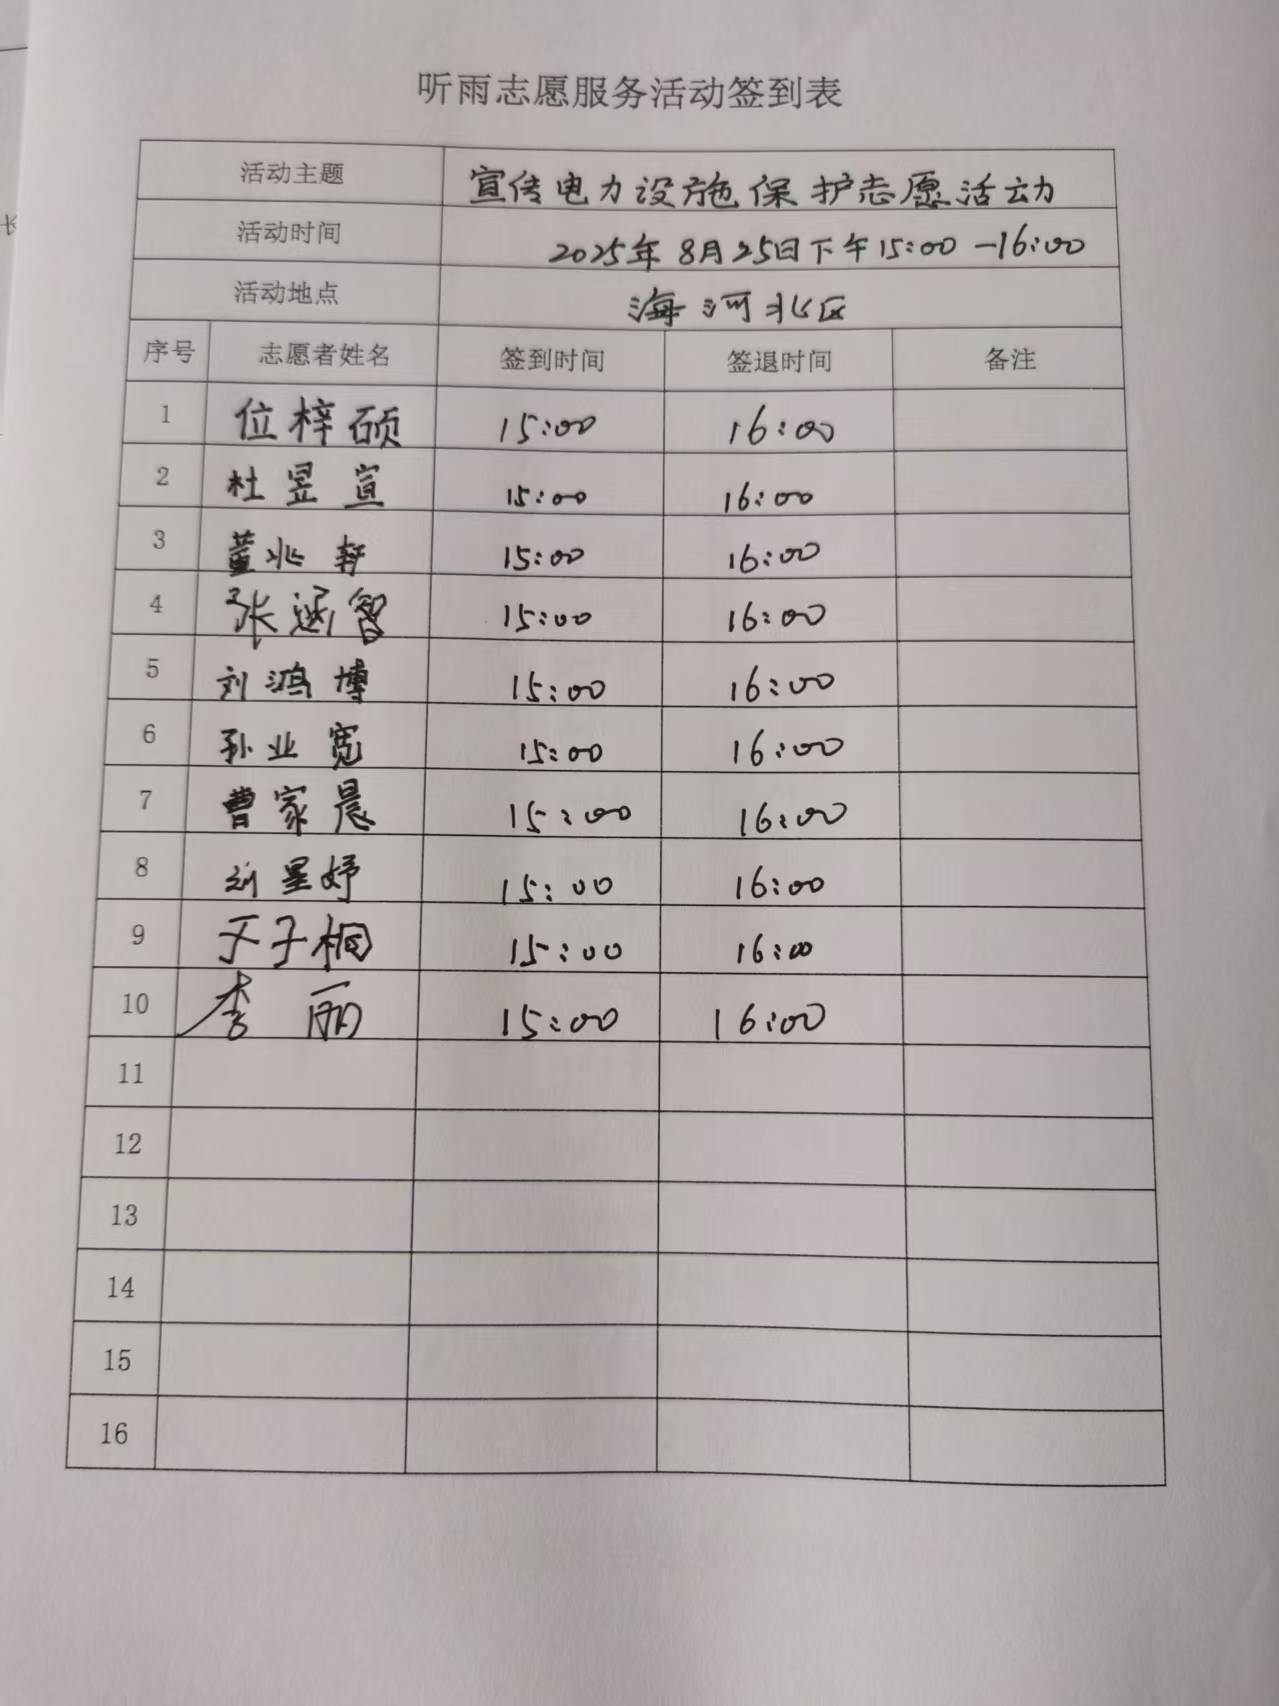 听雨志愿服务活动签到表
活动主题 宣传电力设施保护志愿活动
活动时间 2025年8月25日下午15:00-16:00
活动地点 海河北区
序号 志愿者姓名 签到时间 签退时间 备注
1 位梓硕 15:00 16:00
2 杜昱宣 15:00 16:00
3 董兆轩 15:00 16:00
4 张涵智 15:00 16:00
5 刘鸿博 15:00 16:00
6 孙业宽 15:00 16:00
7 曹家晨 15:00 16:00
8 刘星妤 15:00 16:00
9 于子桐 15:00 16:00
10 李丽 15:00 16:00
11
12
13
14
15
16
长